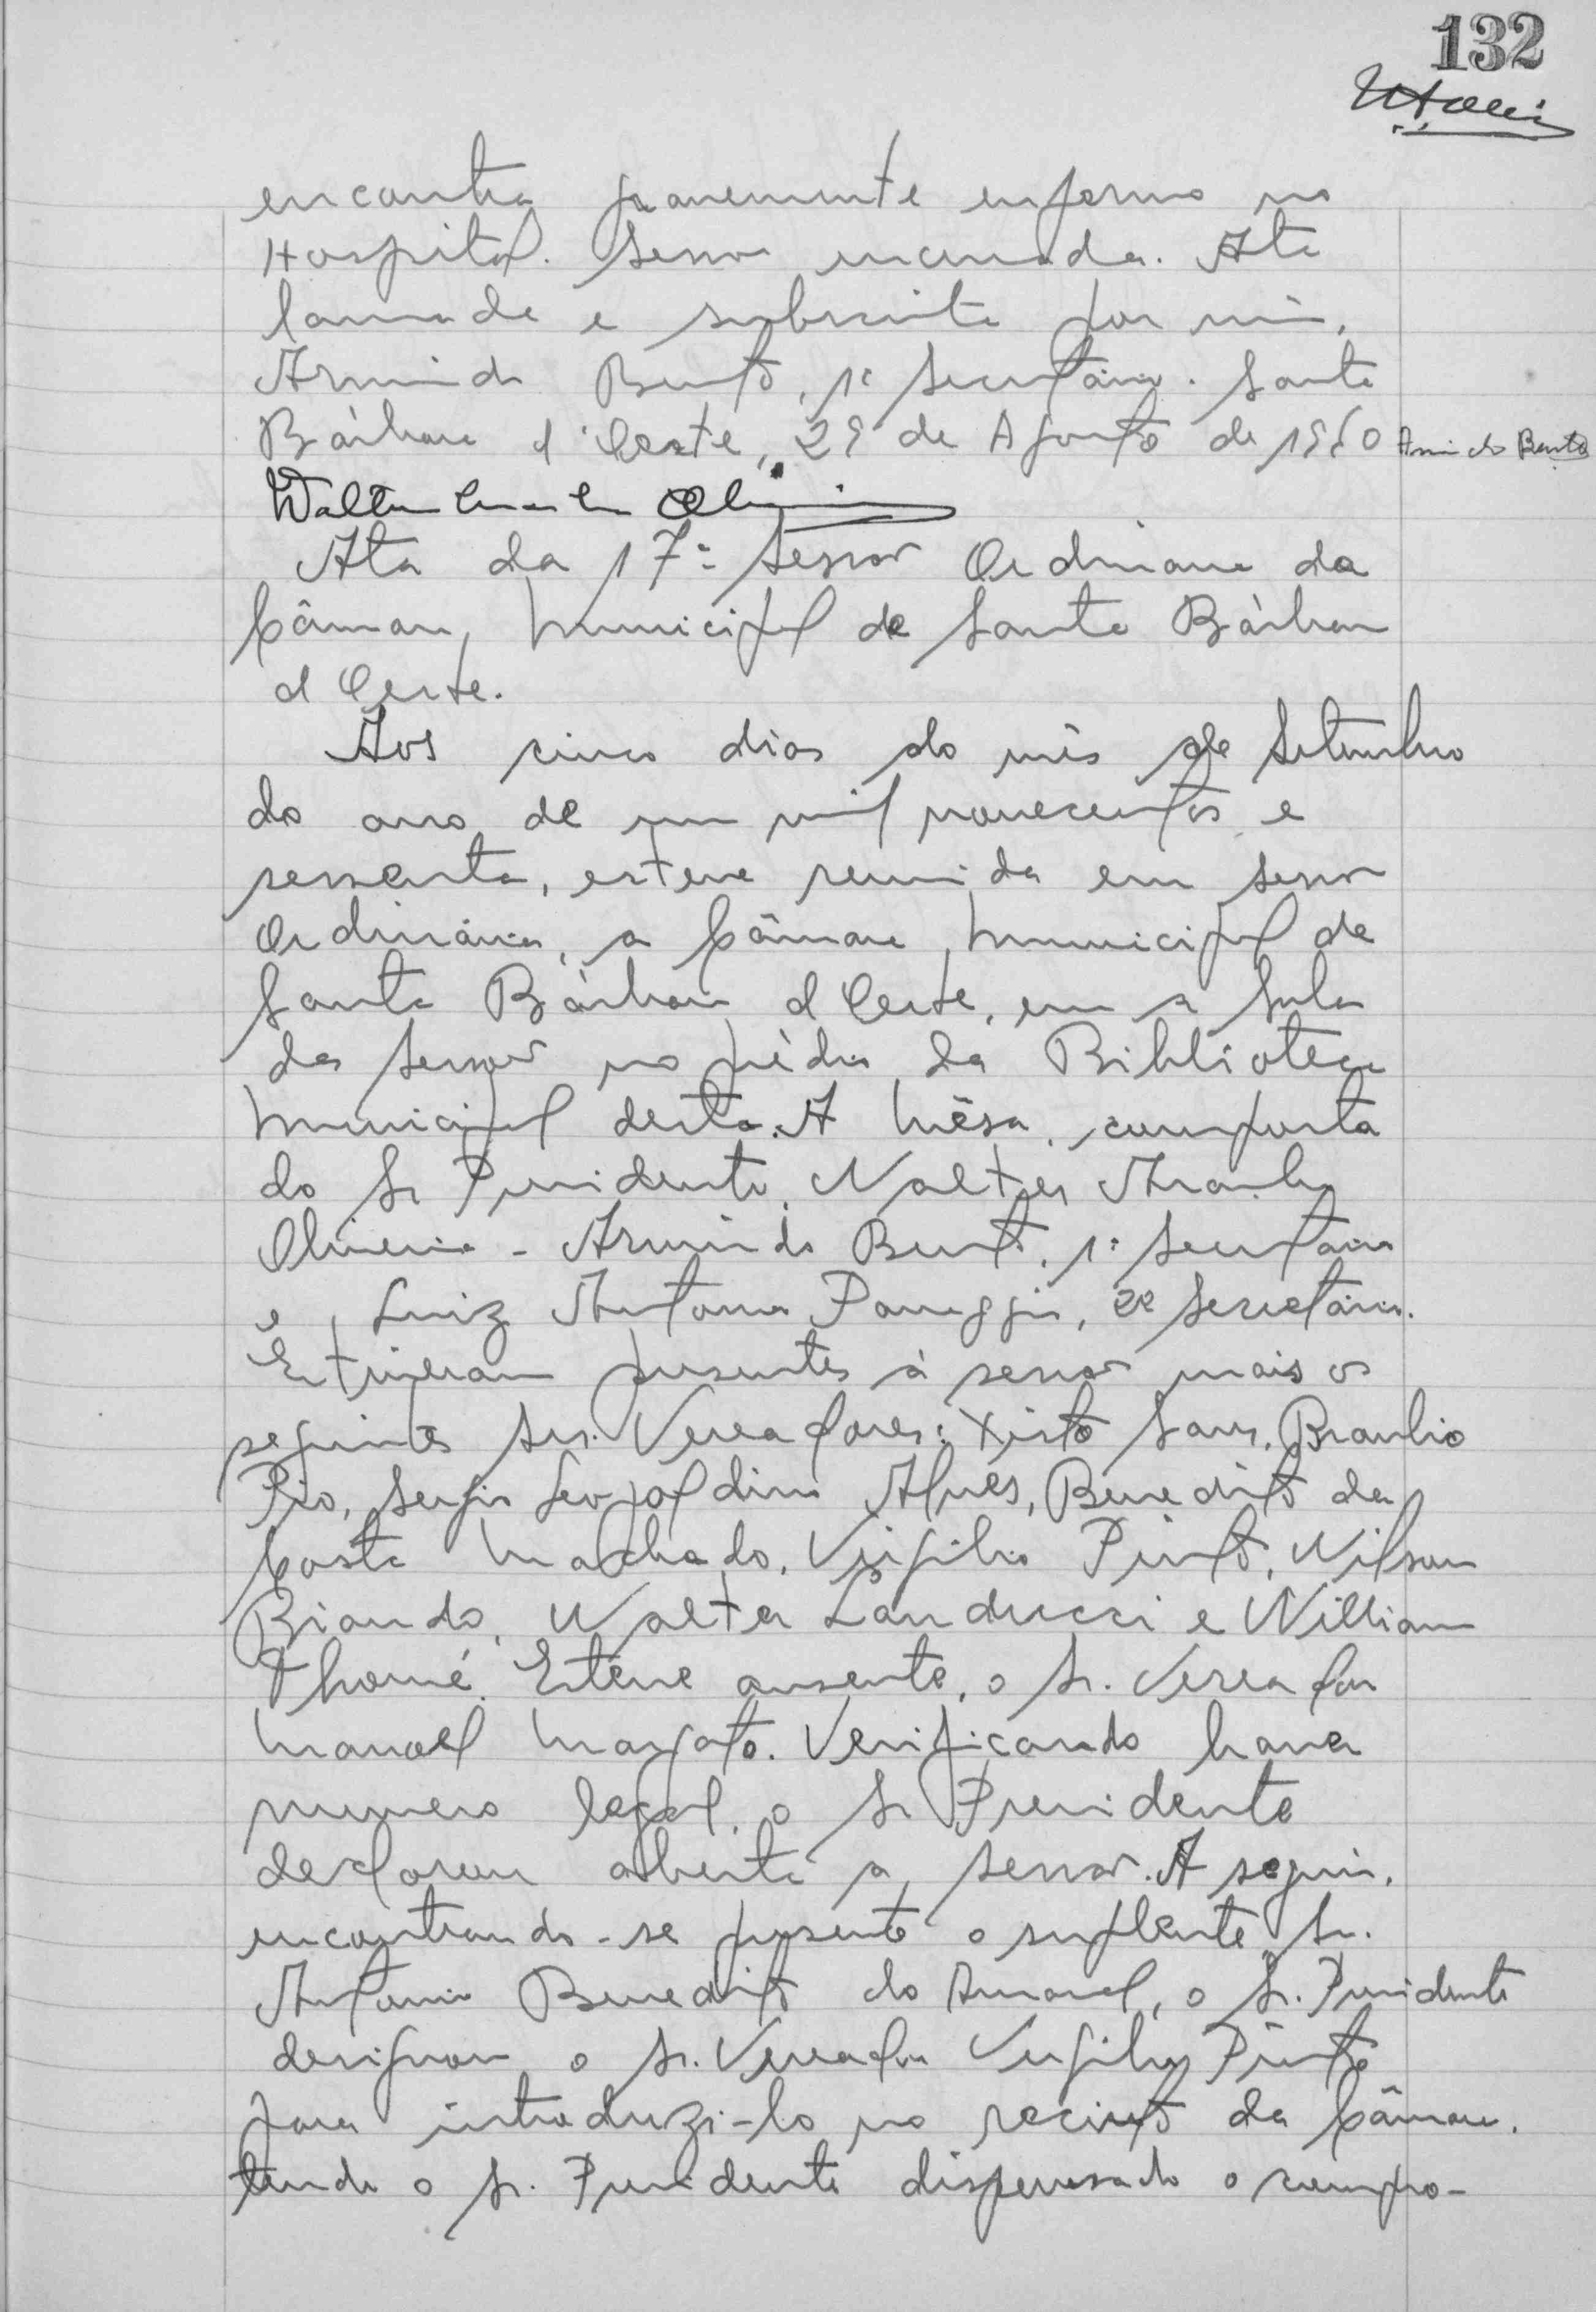 132
encontra gravemente enfermo no
Hospital. Sessão encerrada. Ata
lavrada e subscrita por mim,
Armindo Bento, 1º Secretário. Santa
Bárbara d'Oeste, 29 de Agosto de 1960 Armindo Bento
Walter Oliveira
Ata da 17ª Sessão Ordinaria da
Câmara Municipal de Santa Bárbara
d Oeste.
Aos cinco dias do mês de Setembro
do ano de um mil novecentos e
sessenta, esteve reunida em sessão
Ordinária, a Câmara Municipal de
Santa Bárbara d Oeste, em a Sala
das Sessões no prédio da Biblioteca
Municipal desta. A Mêsa, composta
do Sr Presidente, Walter Aranha
Oliveira - Armindo Bento, 1º Secretário
e, Luiz Antonio Panaggio, 2º Secretário.
Estiveram presentes à sessão mais os
seguintes Srs. Vereadores: Xisto Sans, Braulio
Pio, Sergio Leopoldino Alves, Benedito da
Costa Machado, Virgilio Pinto, Nilson
Biondo, Walter Landucci e William
Thomé. Esteve ausente, o Sr. Vereador
Manoel Margato. Verificando haver
numero legal, o Sr Presidente
declarou aberta a sessão. A seguir,
encontrando-se presente o suplente Sr.
Antonio Benedito do Amaral, o Sr. Presidente
designou o Sr. Vereador Virgilio Pinto
para introduzi-lo no recinto da Câmara,
tendo o Sr. Presidente dispensado o compro-